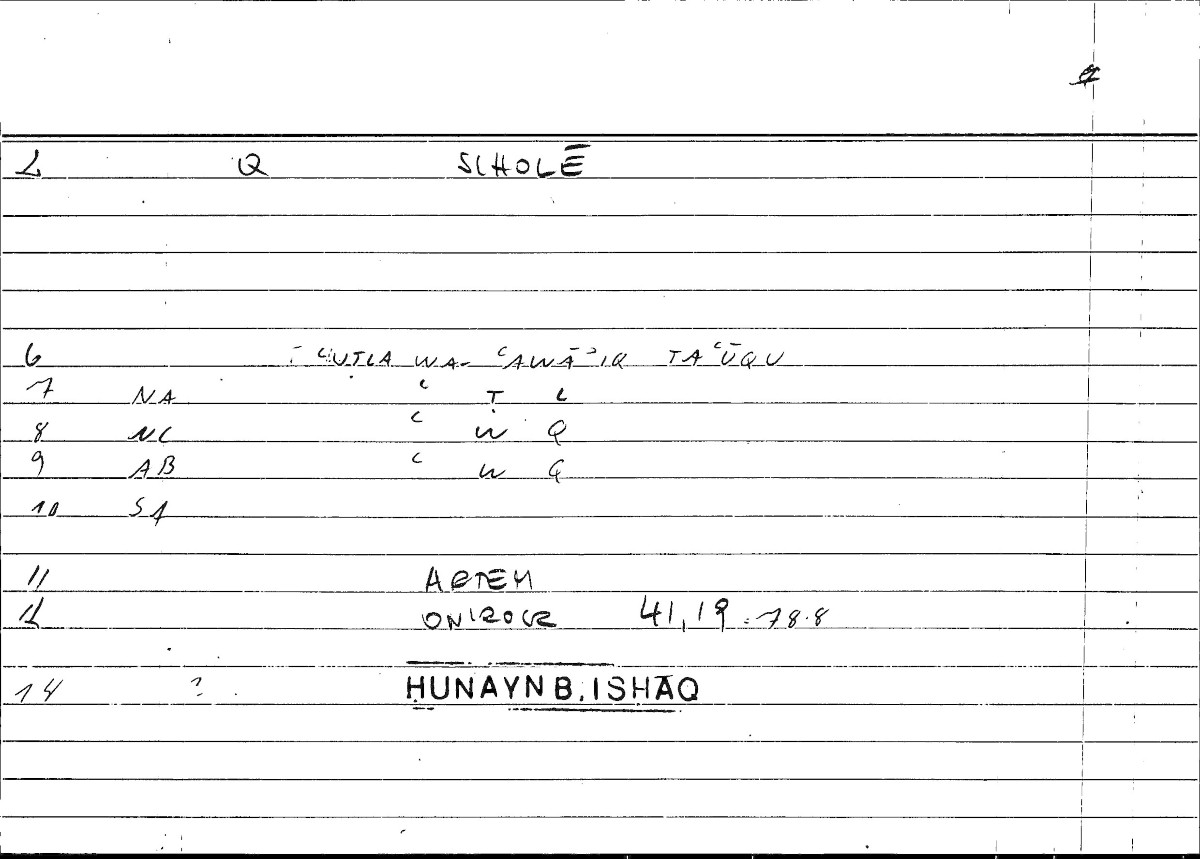 2 Q SCHOLĒ
6 ʿUṬLA WA-ʿAWĀʾIQ TAʿŪQU
7 NA ʿ Ṭ L
8 NC ʿ W Q
9 AB ʿ W Q
10 SA
11 ARTEM
12 ONIROCR 41,19 - 78.8
14 ? ḤUNAYN B. ISḤĀQ